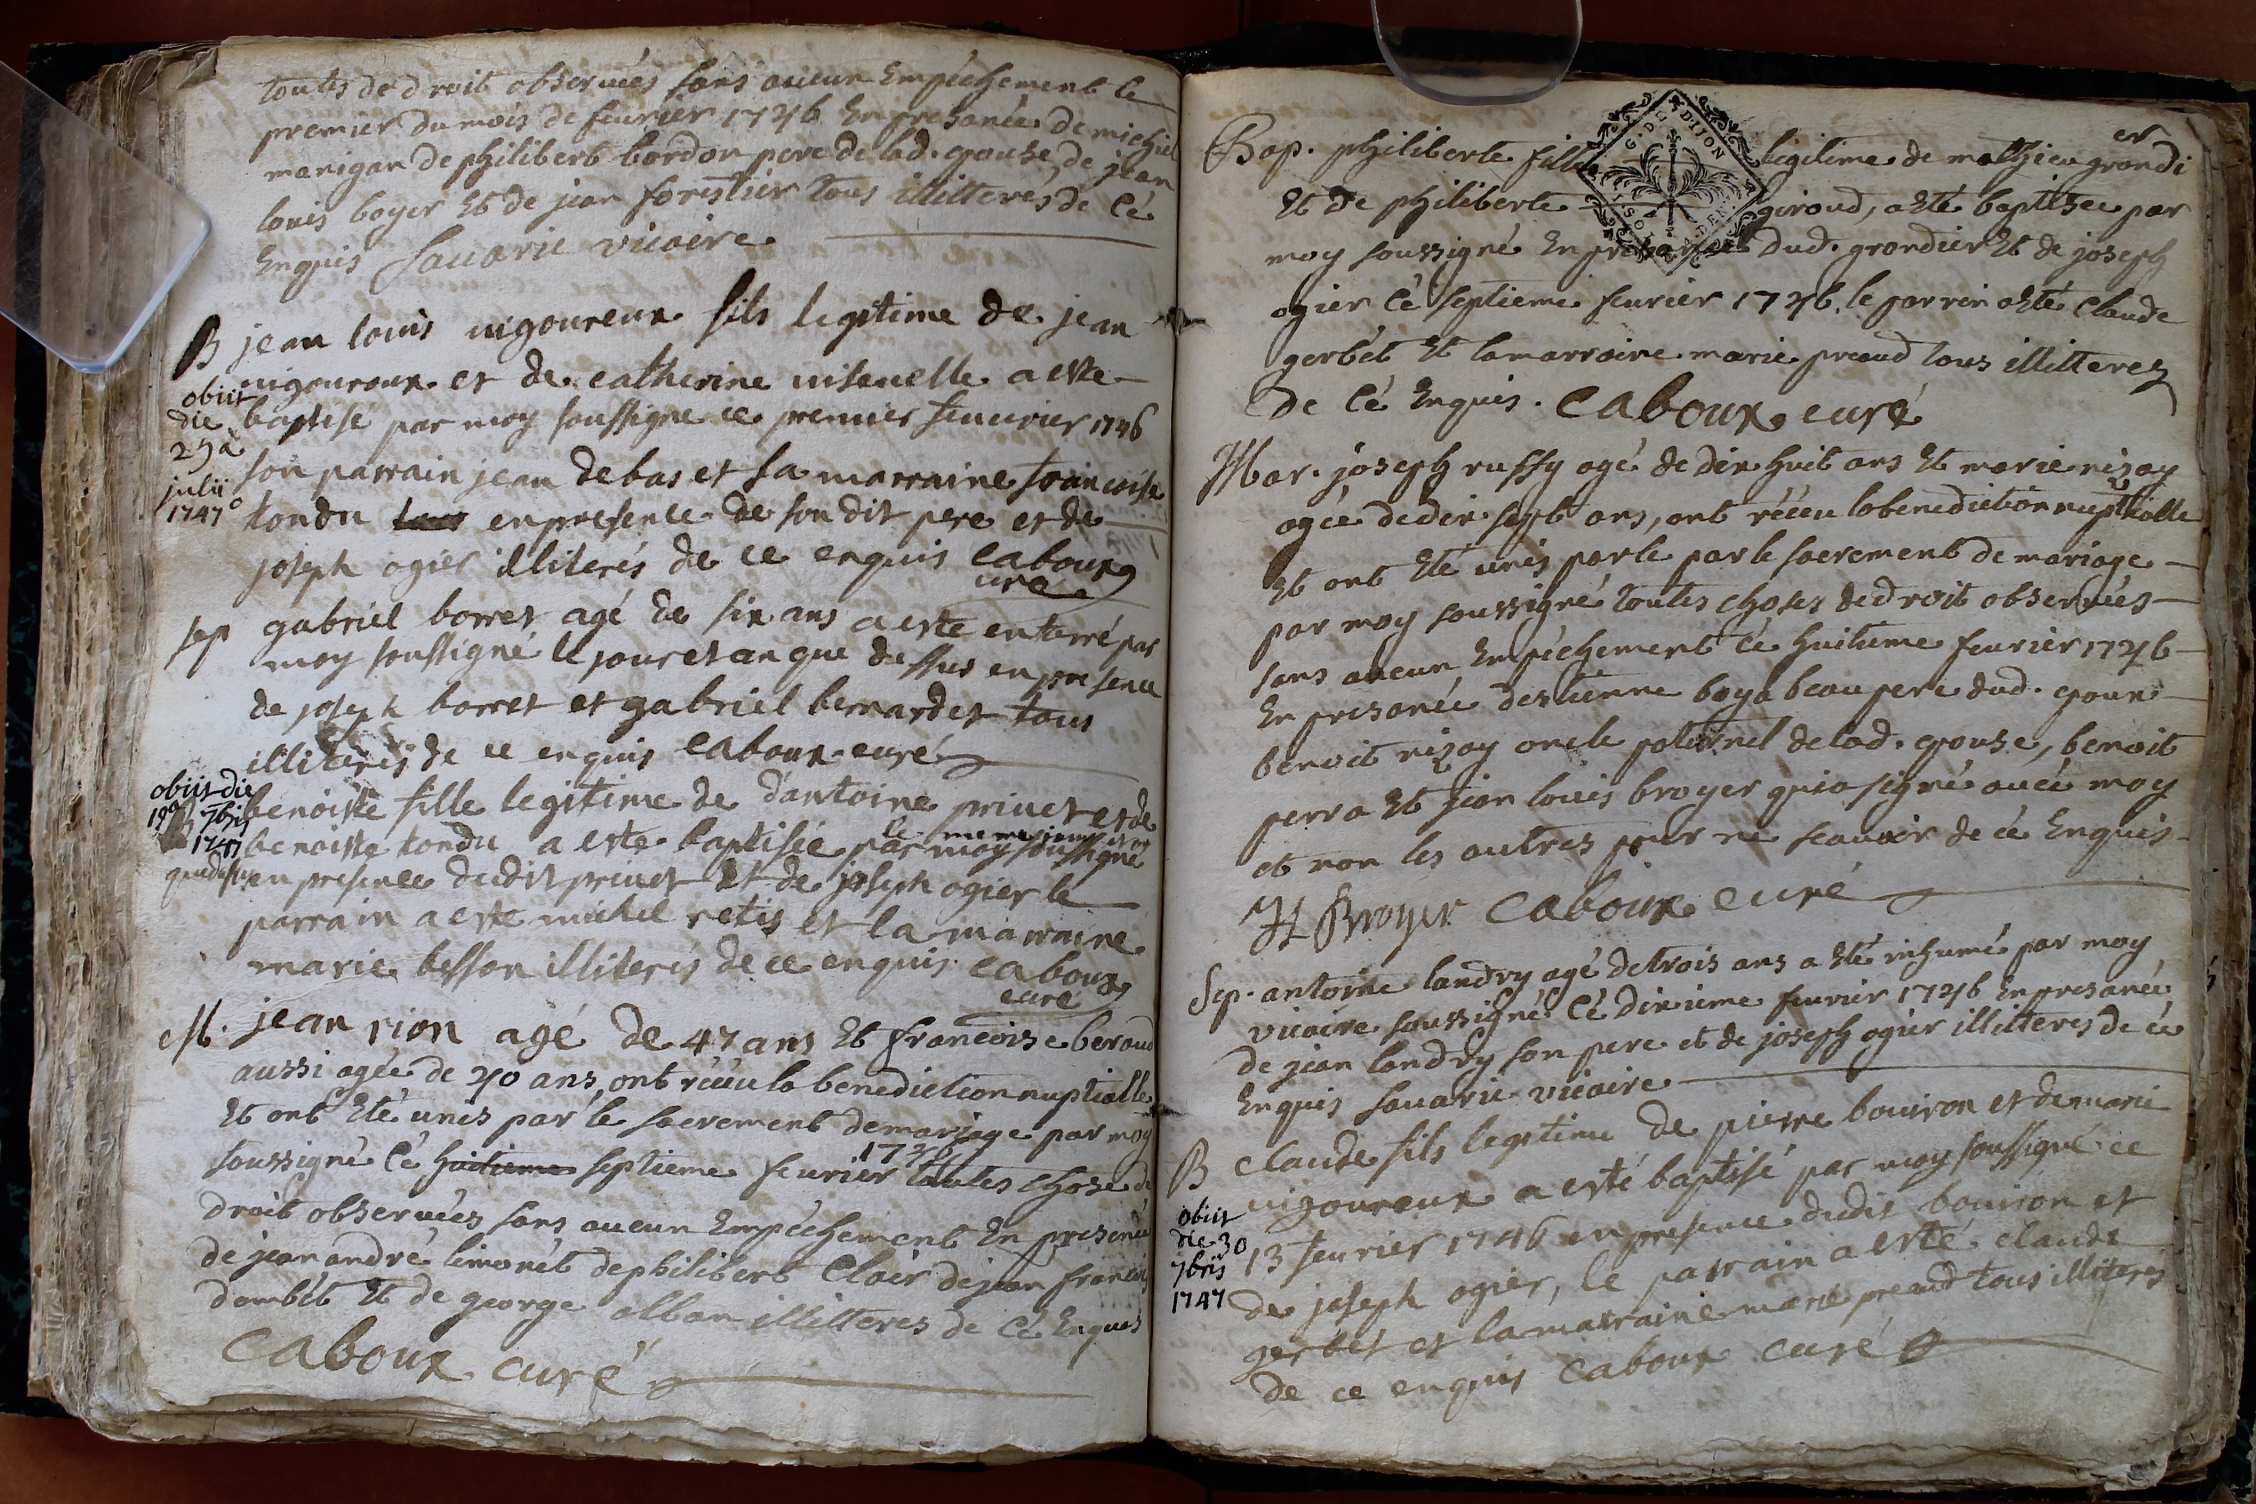 toutes de droit observées sans aucun Empéchement le
premier du mois de feurier 1746 En presance de michiel
manigan de philibert bordon pere de lad. epouse, de jean
louis boyer Et de jean forestier tous illitterés de cé
Enquis Sauarie vicaire
B jean louis uigoureux fils legitime de jean
uigoureux et de catherine uiseuelle a este
obiit
die
29a
julii
1747°
baptisé par moy soussigne ce premier feuurier 1746
son parrain jean debas et sa marraine francoise
tondu tous en presence de son dit pere et de
joseph ogier illiterés de ce enquis Caboux
curé
sep gabriel borret agé de six ans a este enterré par
moy soussigné le jour et an que dessus en presence
de joseph borret et gabriel bernardet tous
illiterés de ce enquis Caboux curé
obiit die
19a
7bris
1747
B benoiste fille legitime de d'antoine priuet et de
benoiste tondu a este baptisée par moy soussigné
le meme jour et an
que dessus en presence dudit priuet Et de joseph ogier le
parrain a este michel retis et la marraine
marie besson illiterés de ce enquis Caboux
curé
M. jean rion agé de 47 ans Et francoise beraud
aussi agée de 40 ans, ont récéu la benediction nuptialle
Et ont Eté unis par le sacrement de mariage par moy
soussigné cé huitieme septieme feurier toutes chose de
1746
droit observées sans aucun Empéchement En presence
de jean andré limonét de philibert Clair de jean francois
dombét Et de george alban illitteres de cé Enquis
Caboux curé
Bap. philiberte fille legitime de mathieu grondi
er
G. DE DIJON
Et de philiberte giroud, a Eté baptisée par
moy soussigné En presance dud. grondier Et de joseph
ogier cé septieme feurier 1746. le parrin a Eté Claude
gerbét Et la marraine marie preaud tous illitterez
de cé Enquis. Caboux curé
Mar. joseph russy agé de dix huit ans Et marie nizay
agée de dix sept ans, ont récéu la benediction nuptialle
Et ont Eté unis par le par le sacrement de mariage
par moy soussigné toutes choses de droit observées
sans aucun Empéchement cé huitieme feurier 1746
En presance destienne boya beau pere dud. epoux
benoit nizay oncle paternel de lad. epouse, benoit
perra Et jean louis broyer qui a signé auec moy
et non les autres pour ne scauoir de cé Enquis
JL Broyer Caboux curé
Sep. antoine landry agé de trois ans a Eté inhumé par moy
vicaire soussigné cé dixieme feurier 1746 En presance
de jean landry son pere et de joseph ogier illitteres de cé
Enquis Sauarie vicaire
B Claude fils legitime de pierre bouiron et de marie
uigoureux a esté baptisé par moy soussigné ce
obiit
die 30
7bris
1747
13 feurier 1746 en presence dudit bouiron et
de joseph ogier, le parrain a esté claude
gerbét et la marraine marie preaud tous illiterés
de ce enquis Caboux curé